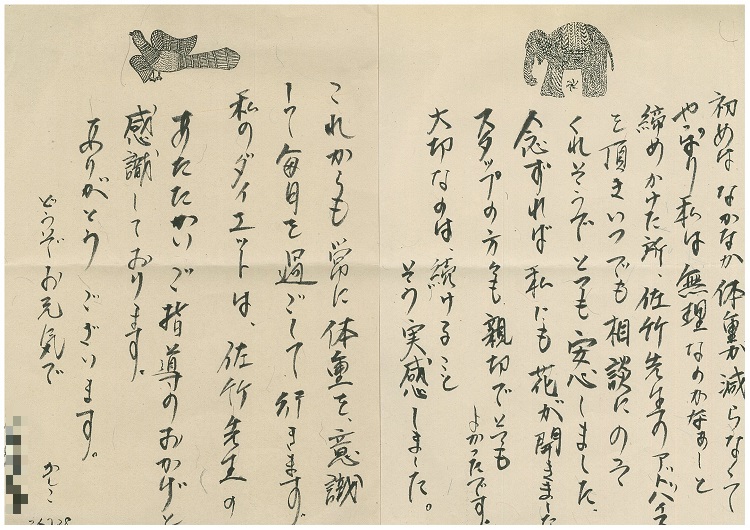 初めはなかなか体重が減らなくて
やっぱり私は無理なのかなぁーと
締めかけた所、佐竹先生のアドバイス
を頂きいつでも相談にのって
くれそうでとても安心しました、
念ずれば私にも花が開きました
スタップの方々も親切でとても
よかったです。
大切なのは、続けること
そう実感しました。
これからも常に体重を、意識
して毎日を過ごして行きます。
私のダイエットは、佐竹先生の
あたたかいご指導のおかげと
感識しております。
ありがとうございます。
どうぞお元気で
かしこ